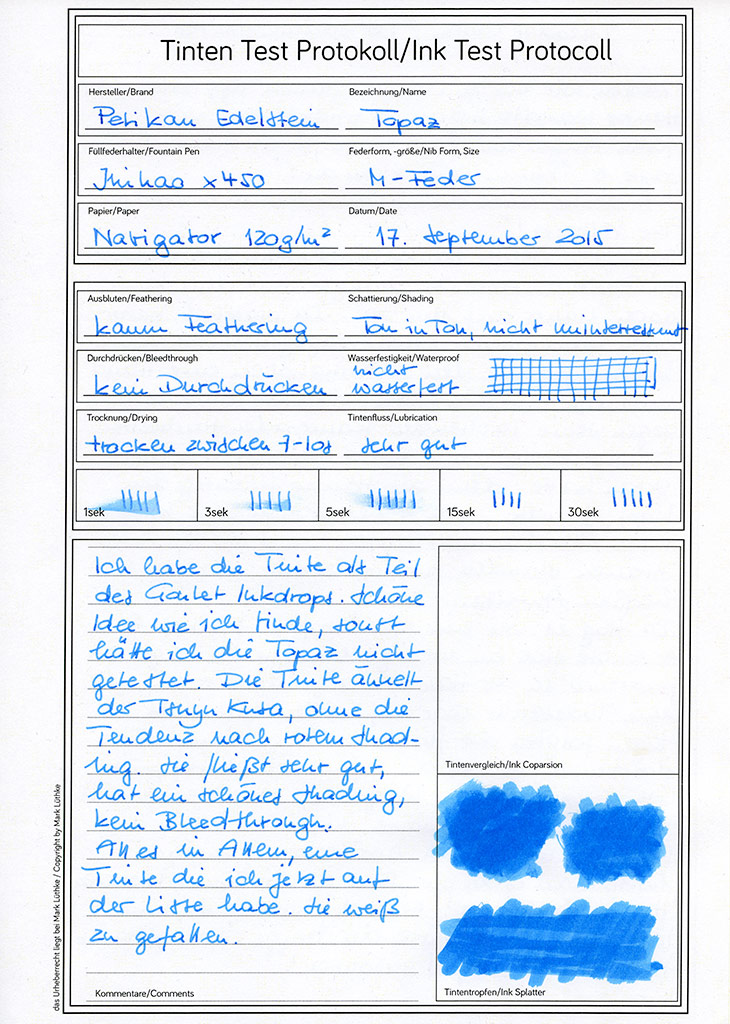 Tinten Test Protokoll/Ink Test Protocoll
Hersteller/Brand
Bezeichnung/Name
Pelikan Edelstein
Topaz
Füllfederhalter/Fountain Pen
Federform, -größe/Nib Form, Size
Jinhao x450
M-Feder
Papier/Paper
Datum/Date
Navigator 120g/m²
17. September 2015
Ausbluten/Feathering
Schattierung/Shading
kaum Feathering
Ton in Ton, nicht uninteressant
Durchdrücken/Bleedthrough
Wasserfestigkeit/Waterproof
kein Durchdrücken
nicht
wasserfest
Trocknung/Drying
Tintenfluss/Lubrication
trocken zwischen 7-10s
sehr gut
1sek
3sek
5sek
15sek
30sek
Ich habe die Tinte als Teil
des Goulet Inkdrops. Schöne
Idee wie ich finde, sonst
hätte ich die Topaz nicht
getestet. Die Tinte ähnelt
der Tsuyu Kusa, ohne die
Tendenz nach rotem Shad-
ing. Sie fließt sehr gut,
hat ein schönes Shading,
kein Bleedthrough.
Alles in Allem, eine
Tinte die ich jetzt auf
der Liste habe. Sie weiß
zu gefallen.
Kommentare/Comments
Tintenvergleich/Ink Coparsion
Tintentropfen/Ink Splatter
das Urheberrecht liegt bei Mark Lüthke / Copyright by Mark Lüthke